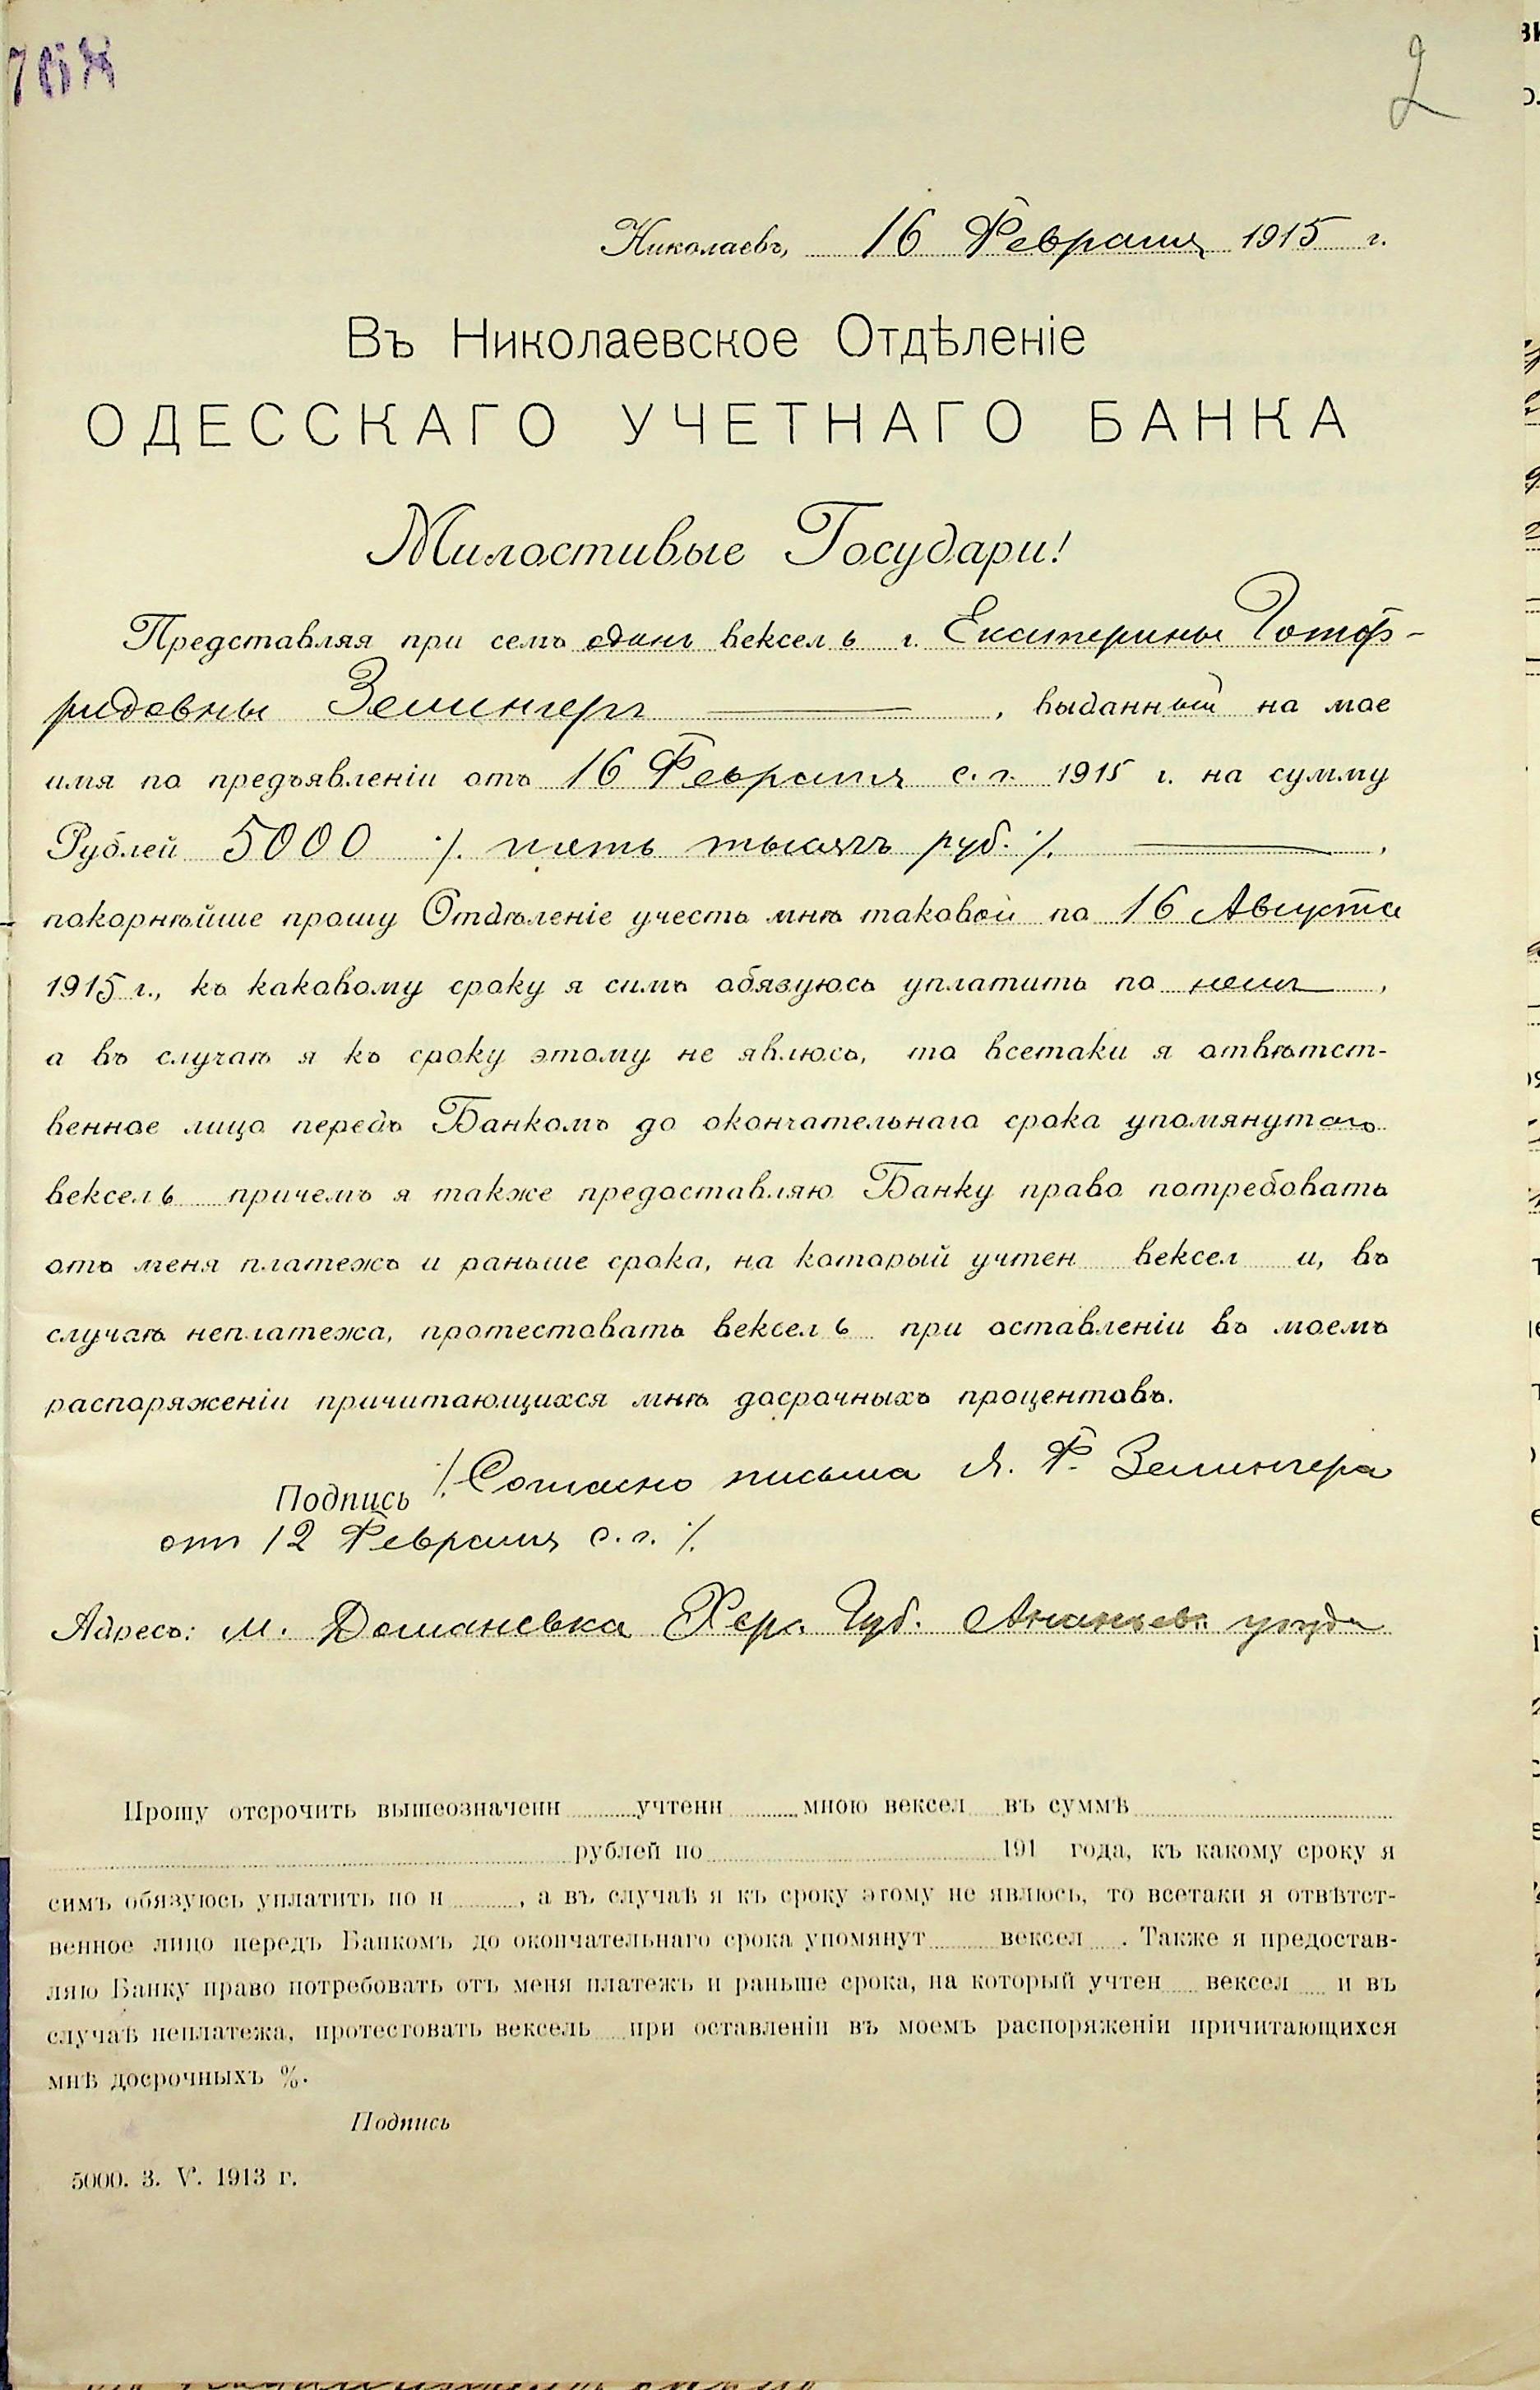 768
2
Николаевъ, 16 Февраля 1915 г.
Въ Николаевское Отдѣленіе
ОДЕССКАГО УЧЕТНАГО БАНКА
Милостивые Государи!
Представляя при семъ одинъ вексель г. Екатерины Готф-
ридовны Земингеръ, выданный на мое
имя по предъявленіи отъ 16 Февраля с. г. 1915 г. на сумму
Рублей 5000 ·/. пять тысячъ руб. ·/.,
покорнѣйше прошу Отдѣленіе учесть мнѣ таковой по 16 Августа
1915 г., къ каковому сроку я симъ обязуюсь уплатить по немъ,
а въ случаѣ я къ сроку этому не явлюсь, то всетаки я отвѣтст-
венное лицо передъ Банкомъ до окончательнаго срока упомянутаго
вексель причемъ я также предоставляю Банку право потребовать
отъ меня платежъ и раньше срока, на который учтен вексел и, въ
случаѣ неплатежа, протестовать вексель при оставленіи въ моемъ
распоряженіи причитающихся мнѣ досрочныхъ процентовъ.
Подпись ·/. Согласно письма Я. Ф. Земингера
отъ 12 Февраля с. г. ·/.
Адресъ: м. Доманевка Хер. Губ. Ананьев. уѣзда
Прошу отсрочить вышеозначенн учтенн мною вексел въ суммѣ
рублей по 191 года, къ какому сроку я
симъ обязуюсь уплатить по н , а въ случаѣ я къ сроку этому не явлюсь, то всетаки я отвѣтст-
венное лицо передъ Банкомъ до окончательнаго срока упомянут вексел . Также я предостав-
ляю Банку право потребовать отъ меня платежъ и раньше срока, на который учтен вексел и въ
случаѣ неплатежа, протестовать вексель при оставленіи въ моемъ распоряженіи причитающихся
мнѣ досрочныхъ %.
Подпись
5000. 3. V. 1913 г.